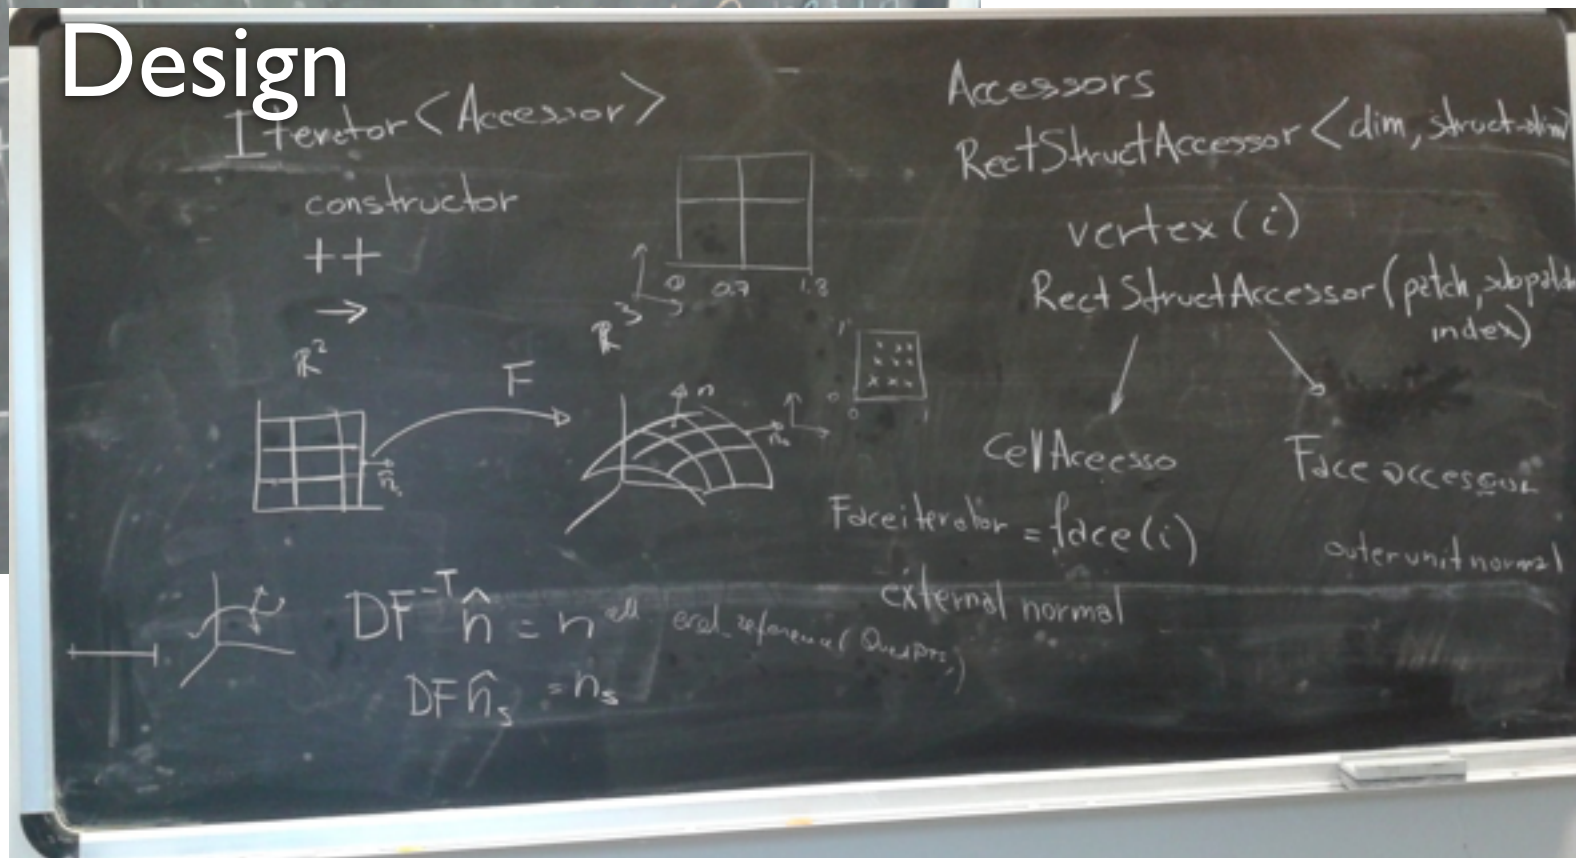 Design
Iterator<Accessor>
constructor
++
→
0 0.7 1.3
ℝ²
F
ℝ³
n
1
0
0 1
DF⁻ᵀ n̂ = n
DF n̂ₛ = nₛ
Accessors
RectStructAccessor<dim, struct-dim
vertex(i)
RectStructAccessor(patch, subpatch
index)
CellAccesso
Face accessor
Faceiterator = face(i)
outer unit normal
external normal